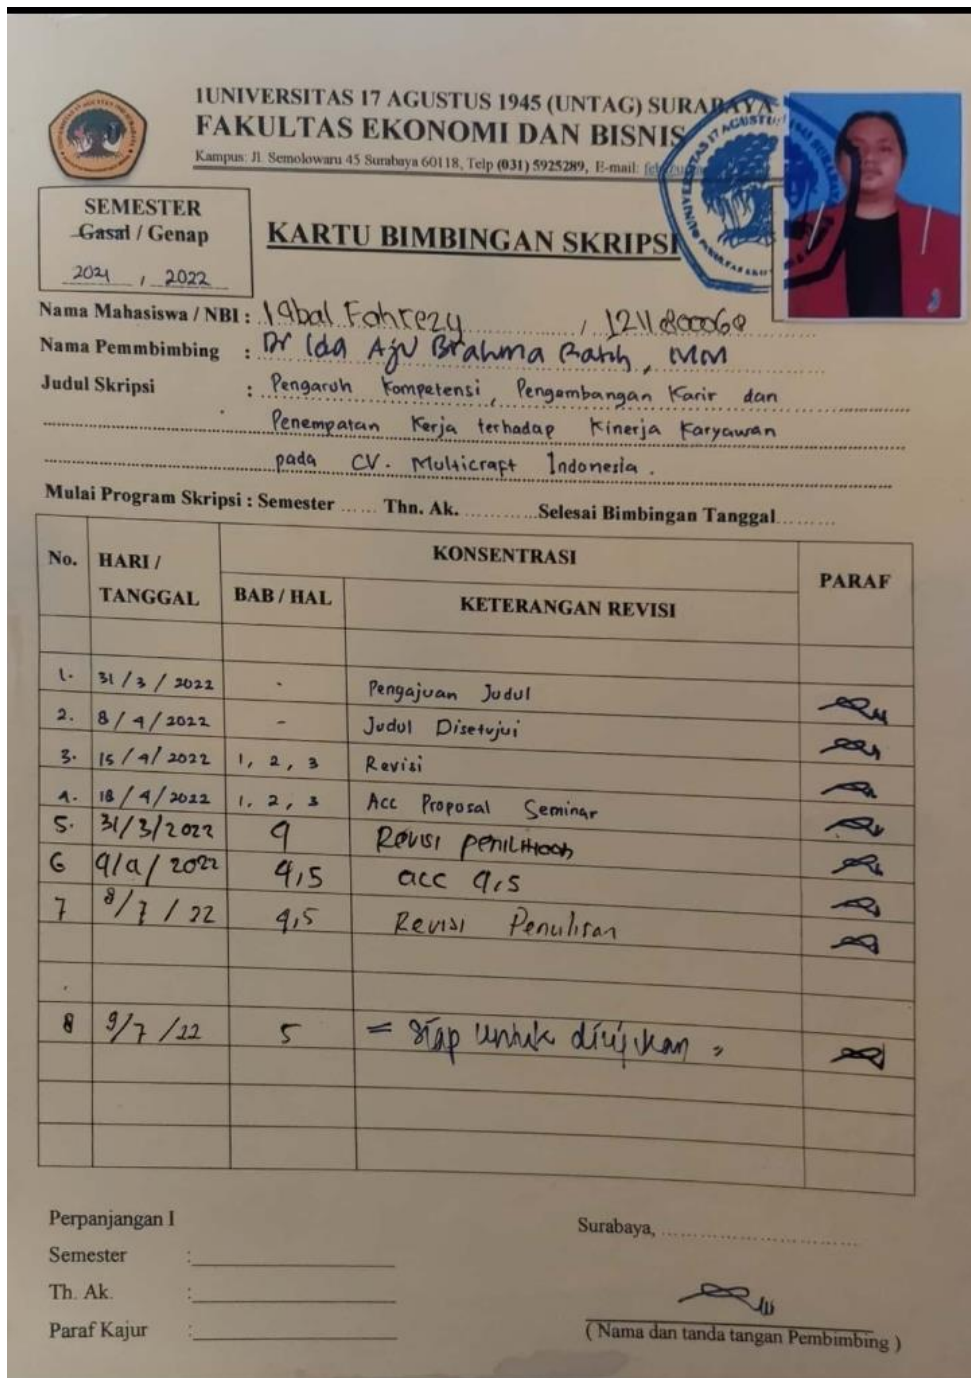 1UNIVERSITAS 17 AGUSTUS 1945 (UNTAG) SURABAYA
FAKULTAS EKONOMI DAN BISNIS
Kampus: Jl. Semolowaru 45 Surabaya 60118, Telp (031) 5925289, E-mail:
SEMESTER
Gasal / Genap
2021 / 2022
KARTU BIMBINGAN SKRIPSI
Nama Mahasiswa / NBI : Iqbal Fahrezy / 1211800060
Nama Pemmbimbing : Dr Ida Aju Brahma Ratih, MM
Judul Skripsi : Pengaruh Kompetensi, Pengembangan Karir dan
Penempatan Kerja terhadap Kinerja Karyawan
pada CV. Multicraft Indonesia.
Mulai Program Skripsi : Semester ...... Thn. Ak. ............Selesai Bimbingan Tanggal.........
No. HARI / TANGGAL KONSENTRASI PARAF
BAB / HAL KETERANGAN REVISI
1. 31 / 3 / 2022 - Pengajuan Judul
2. 8 / 4 / 2022 - Judul Disetujui
3. 15 / 4 / 2022 1, 2, 3 Revisi
4. 18 / 4 / 2022 1, 2, 3 Acc Proposal Seminar
5. 31/3/2022 4 Revisi
6 / 2022 4,5 acc 4,5
7 8/7 / 22 4,5 Revisi Penulisan
8 9/7 /22 5 = siap untuk diujikan =
Perpanjangan I
Surabaya, ..............................
Semester :
Th. Ak. :
Paraf Kajur :
( Nama dan tanda tangan Pembimbing )